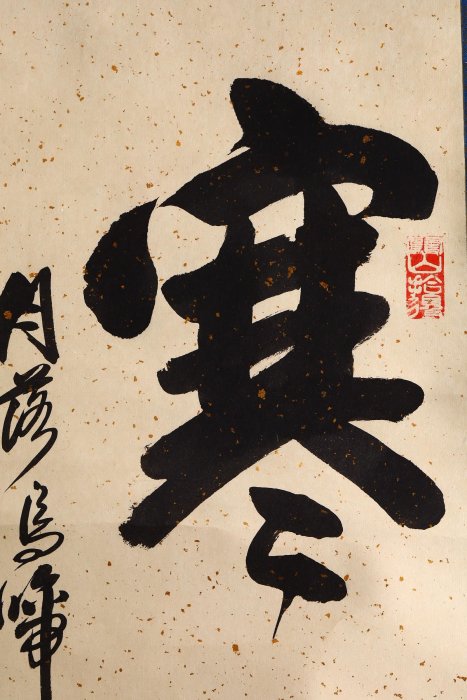 寒
月落烏啼